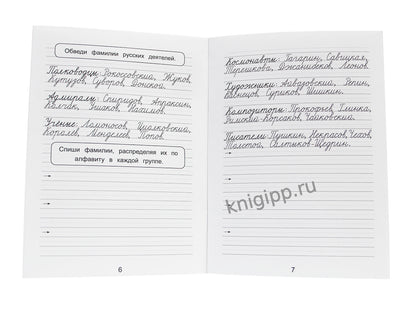 Обведи фамилии русских деятелей.
Полководцы: Рокоссовский, Жуков,
Кутузов, Суворов, Донской.
Адмиралы: Спиридов, Апраксин,
Колчак, Ушаков, Нахимов.
Учёные: Ломоносов, Циолковский,
Королев, Менделеев, Попов.
Спиши фамилии, распределяя их по
алфавиту в каждой группе.
6
Космонавты: Гагарин, Савицкая,
Терешкова, Джанибеков, Леонов.
Художники: Айвазовский, Репин,
Васнецов, Суриков, Шишкин.
Композиторы: Прокофьев, Глинка,
Римский-Корсаков, Чайковский.
Писатели: Пушкин, Некрасов, Чехов,
Толстой, Салтыков-Щедрин.
7
knigipp.ru